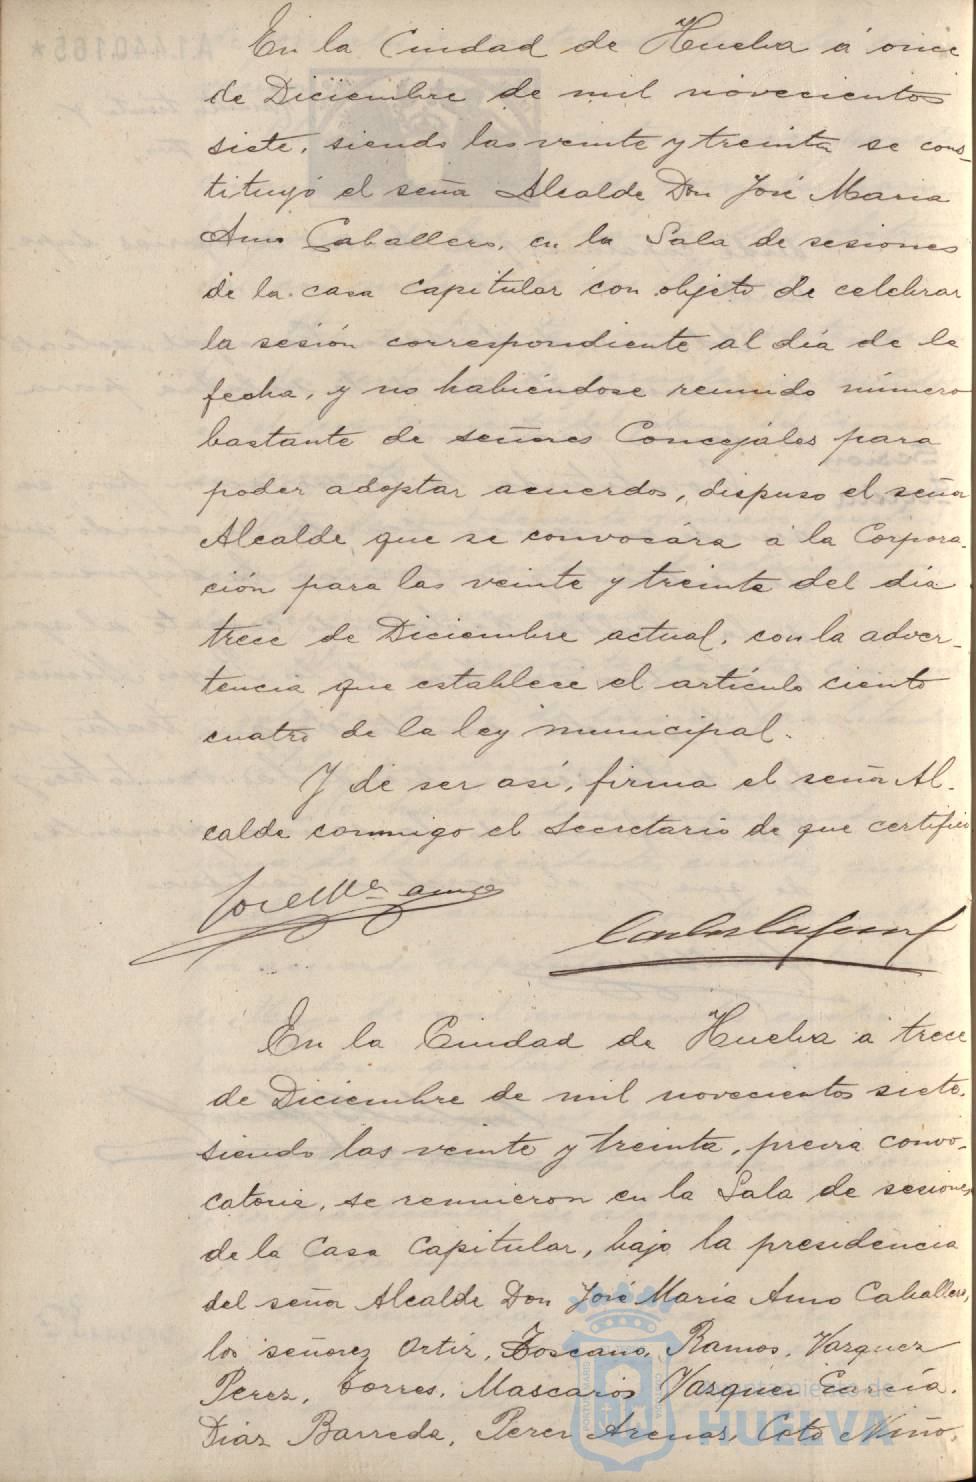 En la Ciudad de Huelva á once
de Diciembre de mil novecientos
siete, siendo las veinte y treinta se cons-
tituyó el señor Alcalde Don José Maria
Amo Caballero, en la Sala de sesiones
de la casa Capitular con objeto de celebrar
la sesión correspondiente al día de la
fecha, y no habiéndose reunido número
bastante de señores Concejales para
poder adoptar acuerdos, dispuso el señor
Alcalde que se convocára á la Corpora-
ción para las veinte y treinta del día
trece de Diciembre actual, con la adver-
tencia que establece el artículo ciento
cuatro de la ley municipal.
Y de ser así, firma el señor Al-
calde conmigo el Secretario de que certifico
José Mª Amo
En la Ciudad de Huelva á trece
de Diciembre de mil novecientos siete,
siendo las veinte y treinta, previa convo-
catoria, se reunieron en la Sala de sesiones
de la Casa Capitular, bajo la presidencia
del señor Alcalde Don José Maria Amo Caballero,
los señorez Ortiz, Toscano, Ramos, Vazquez
Perez, Torres, Mascarós Vazquez García,
Diaz Barreda, Perez Arenas, Coto Niño,
Ayuntamiento de
HUELVA
A.1.440.165*